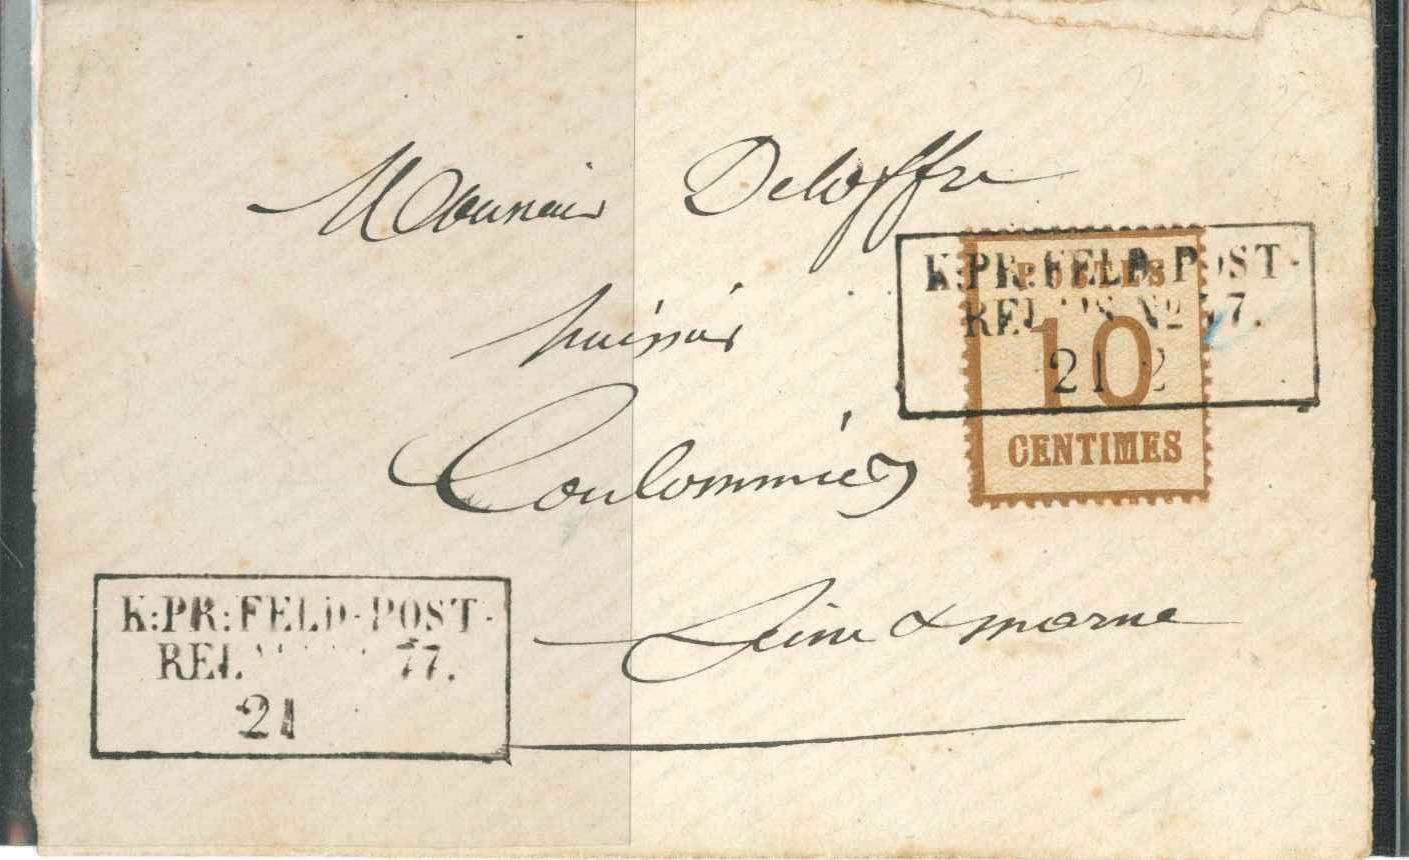 Monsieur Deloffre
huissier
Coulommiers
Seine & marne
K:PR:FELD-POST-
RELAIS No 77.
21 2
POSTES
10
CENTIMES
K:PR:FELD-POST-
REL 77.
21